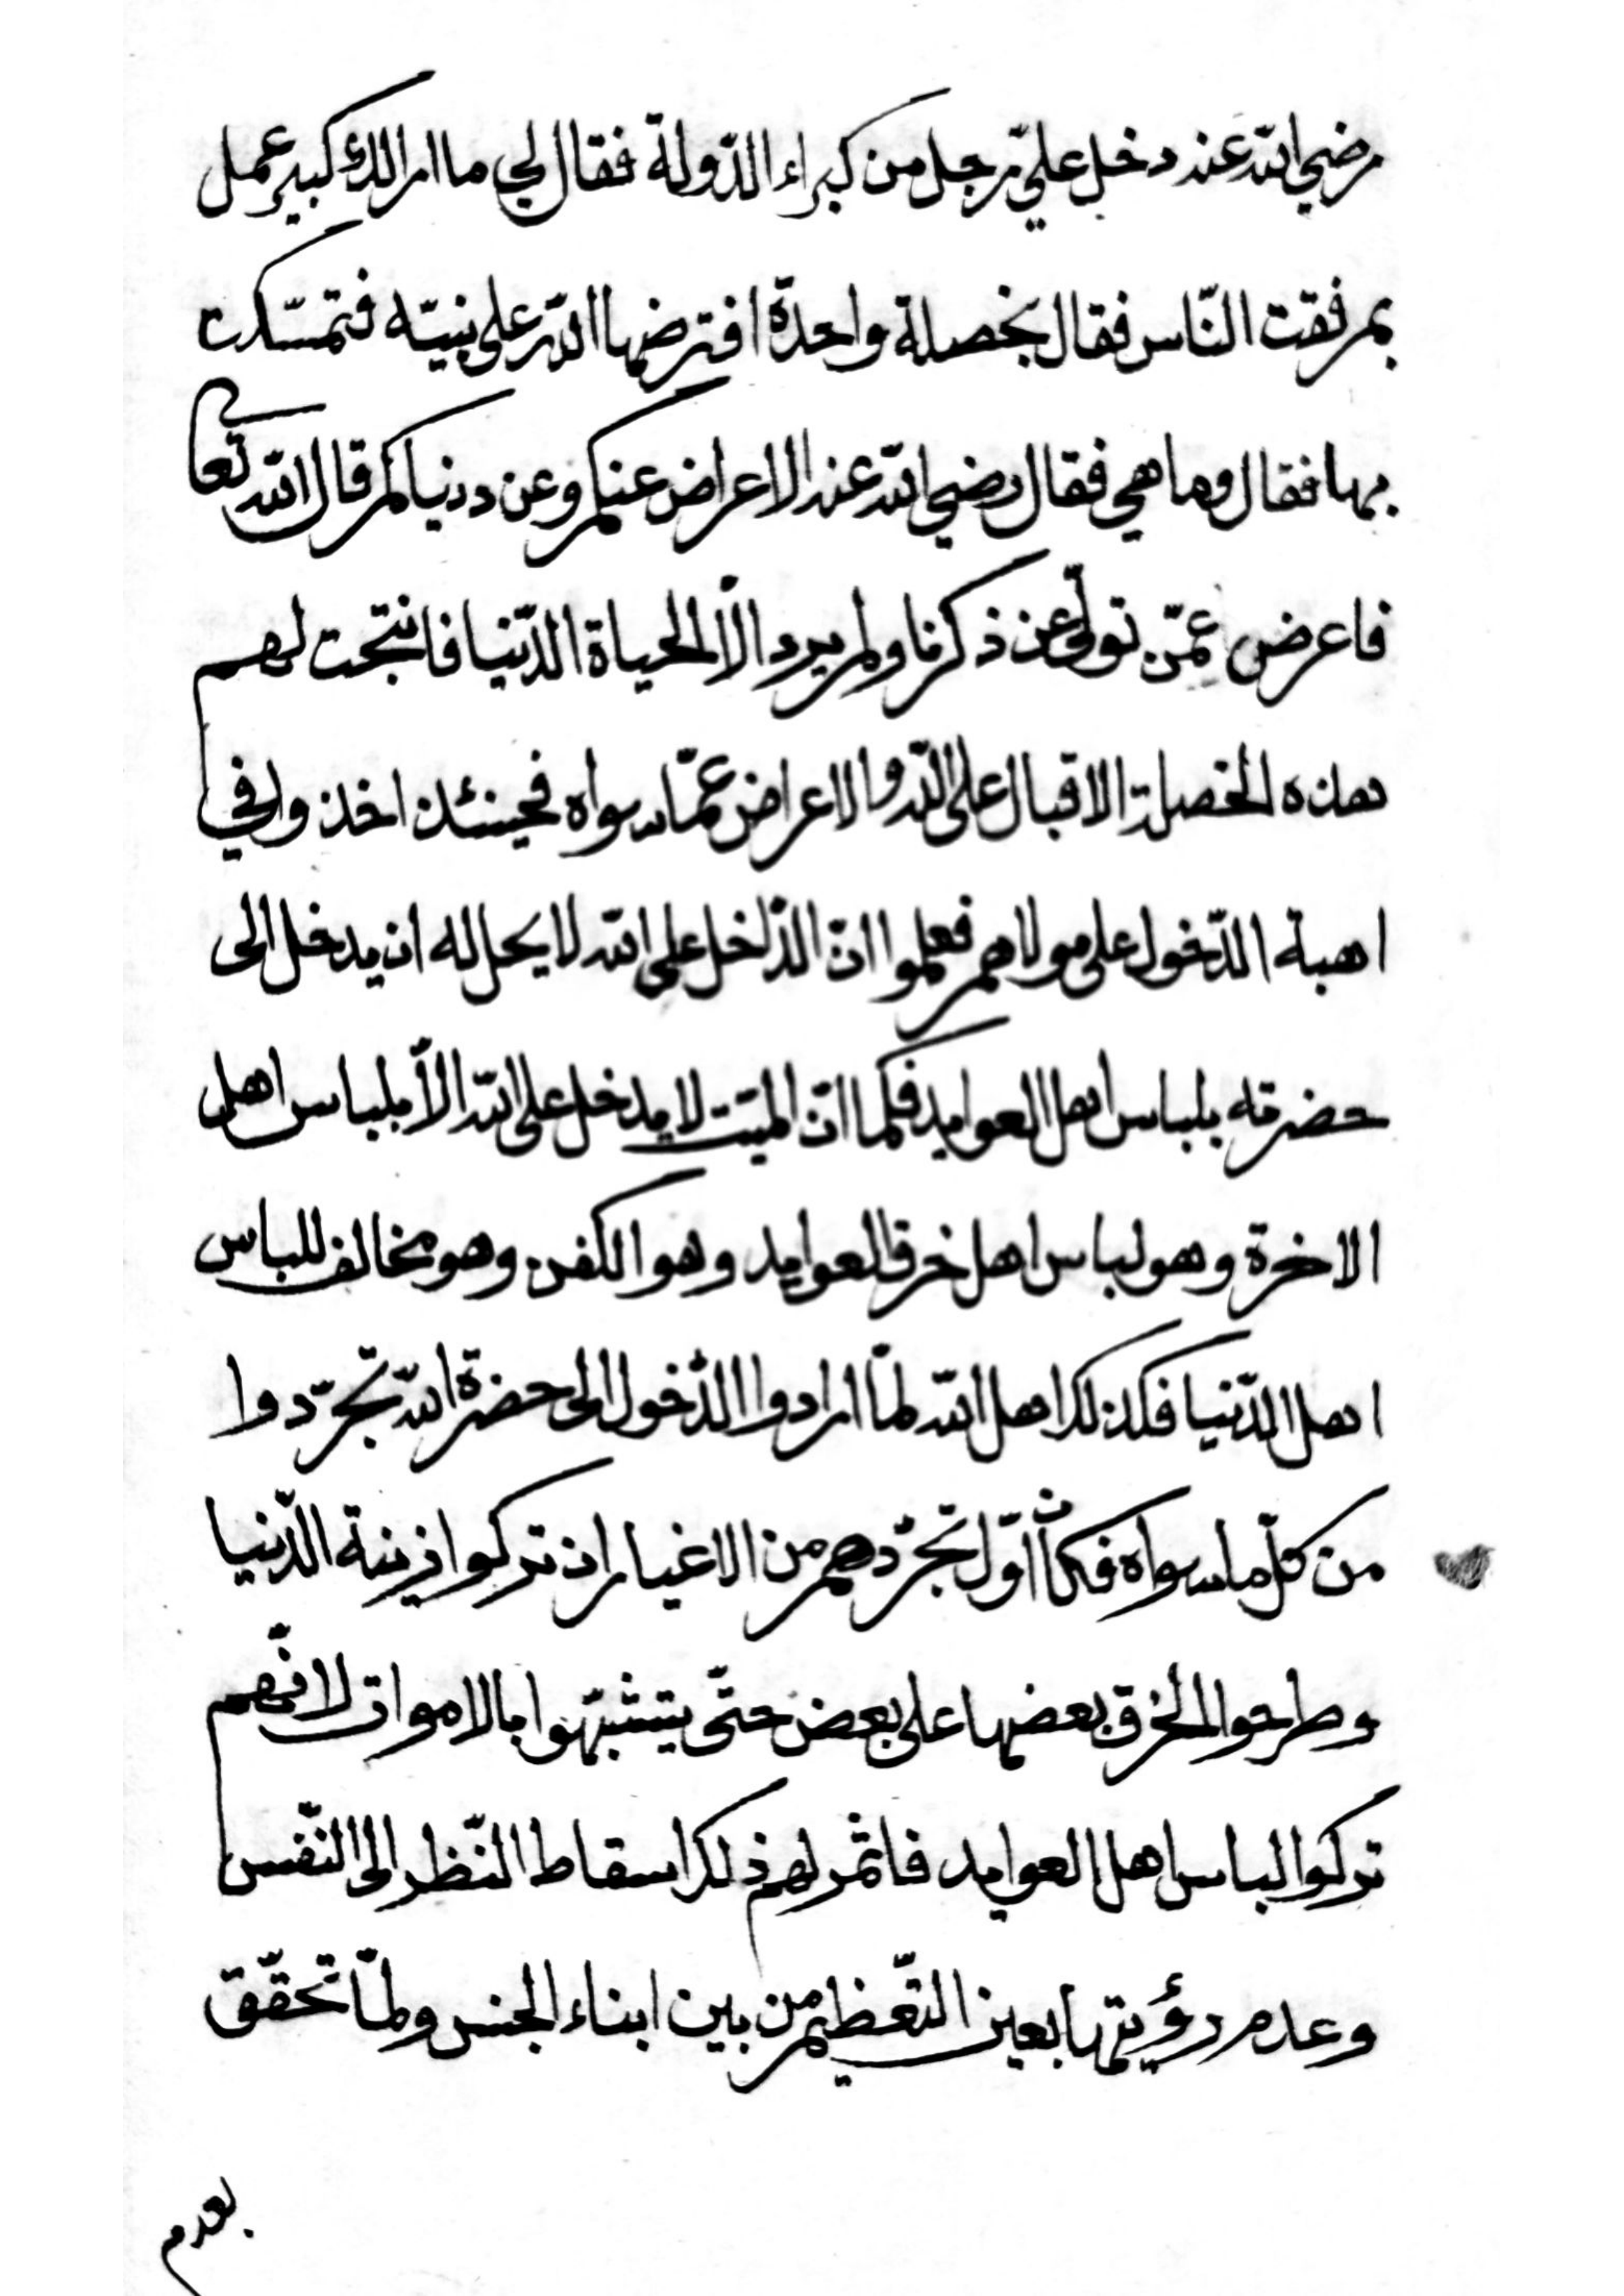 رضي الله عنه دخل عليّ رجل من كبراء الدّولة فقال لي ما ارالك كبير عمل
بم رفقت النّاس فقال بخصلة واحدة افترضها الله على نبيّه فتمسّكت
بها فقال وما هي فقال رضي الله عنه الاعراض عنكم وعن دنياكم قال الله تعا
فاعرض عمّن تولّى عن ذكرنا ولم يرد الّا الحياة الدّنيا فانتجت لهم
هذه الخصلة الاقبال على الله والاعراض عمّا سواه فحينئذ اخذوا في
اهبة الدّخول على مولاهم فعلموا انّ الدّاخل على الله لا يحل له ان يدخل الى
حضرته بلباس اهل العوايد فكما انّ الميّت لا يدخل على الله الّا بلباس اهل
الاخرة وهو لباس اهل خرق العوايد وهو الكفن وهو مخالف للباس
اهل الدّنيا فكذلك اهل الله لمّا ارادوا الدّخول الى حضرة الله تجرّدوا
من كلّ ما سواه فكان اوّل تجرّدهم من الاغيار ان تركوا زينة الدّنيا
وطرحوا الخرق بعضها على بعض حتّى يتشبّهوا بالاموات لانّهم
تركوا لباس اهل العوايد فاثمر لهم ذلك اسقاط النّظر الى النّفس
وعدم رؤيتها بعين التّعظيم من بين ابناء الجنس ولمّا تحقّق
بعدم